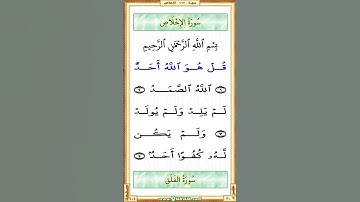 سُورَةُ الإِخْلَاصِ
بِسْمِ ٱللَّهِ ٱلرَّحْمَٰنِ ٱلرَّحِيمِ
قُلْ هُوَ ٱللَّهُ أَحَدٌ
۝١ ٱللَّهُ ٱلصَّمَدُ ۝٢
لَمْ يَلِدْ وَلَمْ يُولَدْ
۝٣ وَلَمْ يَكُن
لَّهُۥ كُفُوًا أَحَدٌۢ ۝٤
سُورَةُ الفَلَقِ